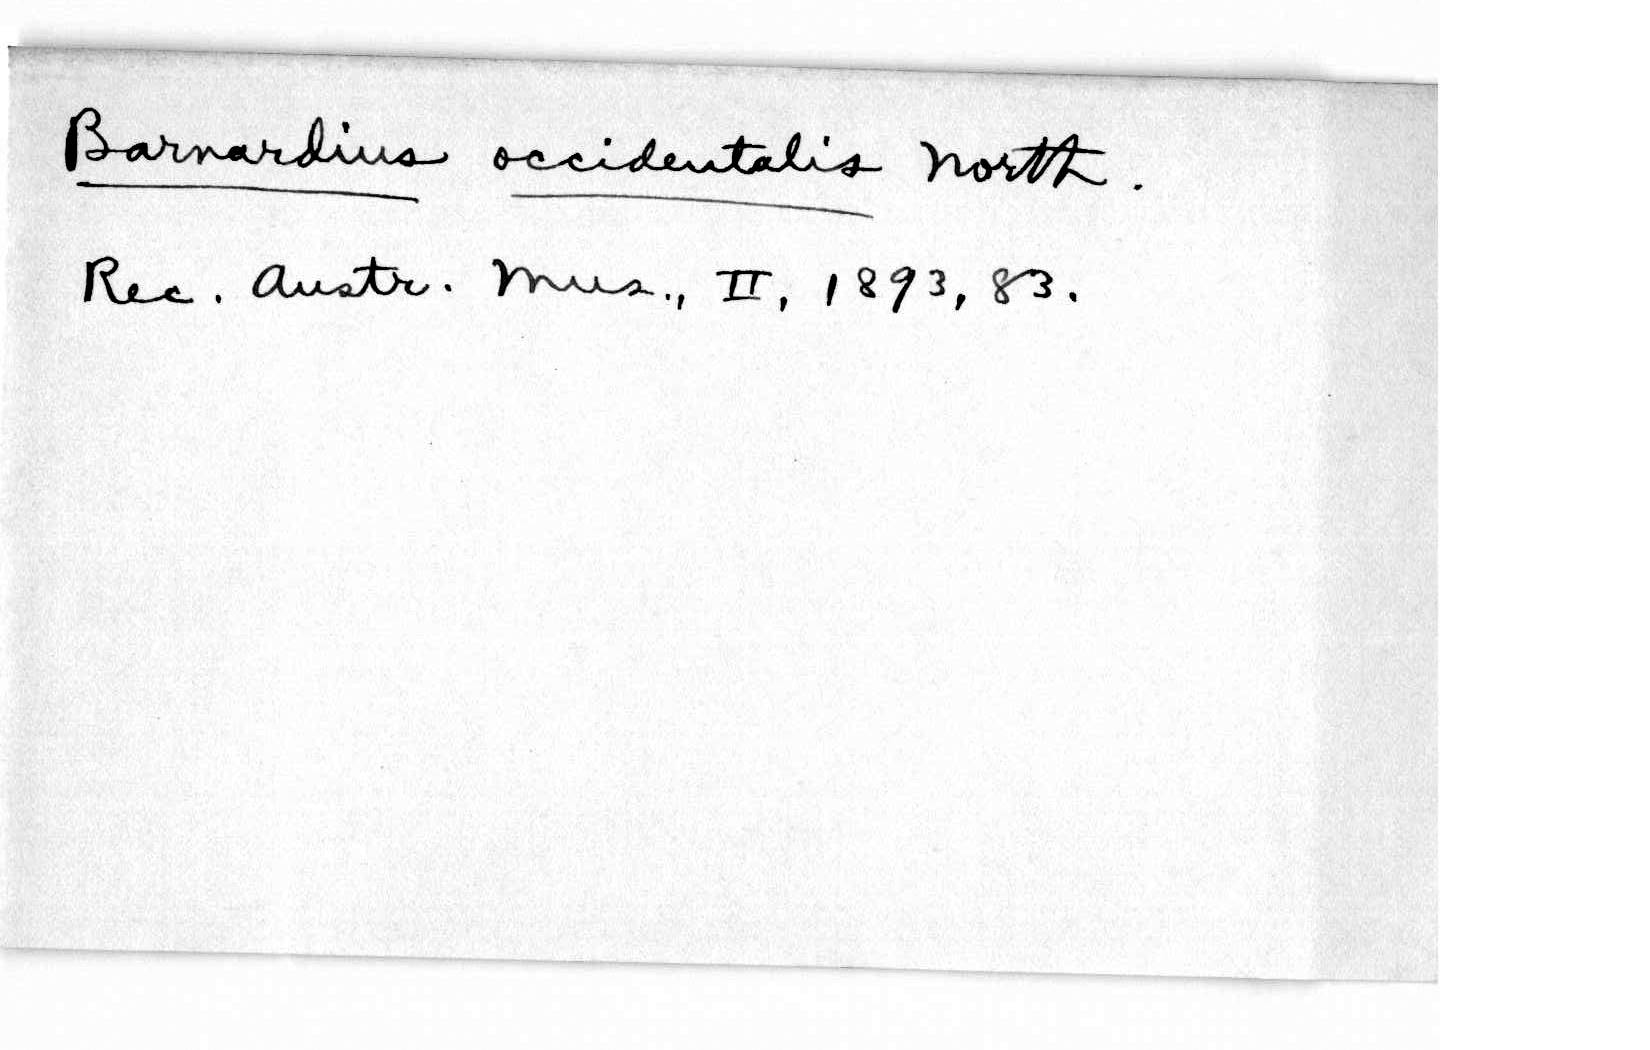 Barnardius occidentalis North.
Rec. Austr. Mus., II, 1893, 83.